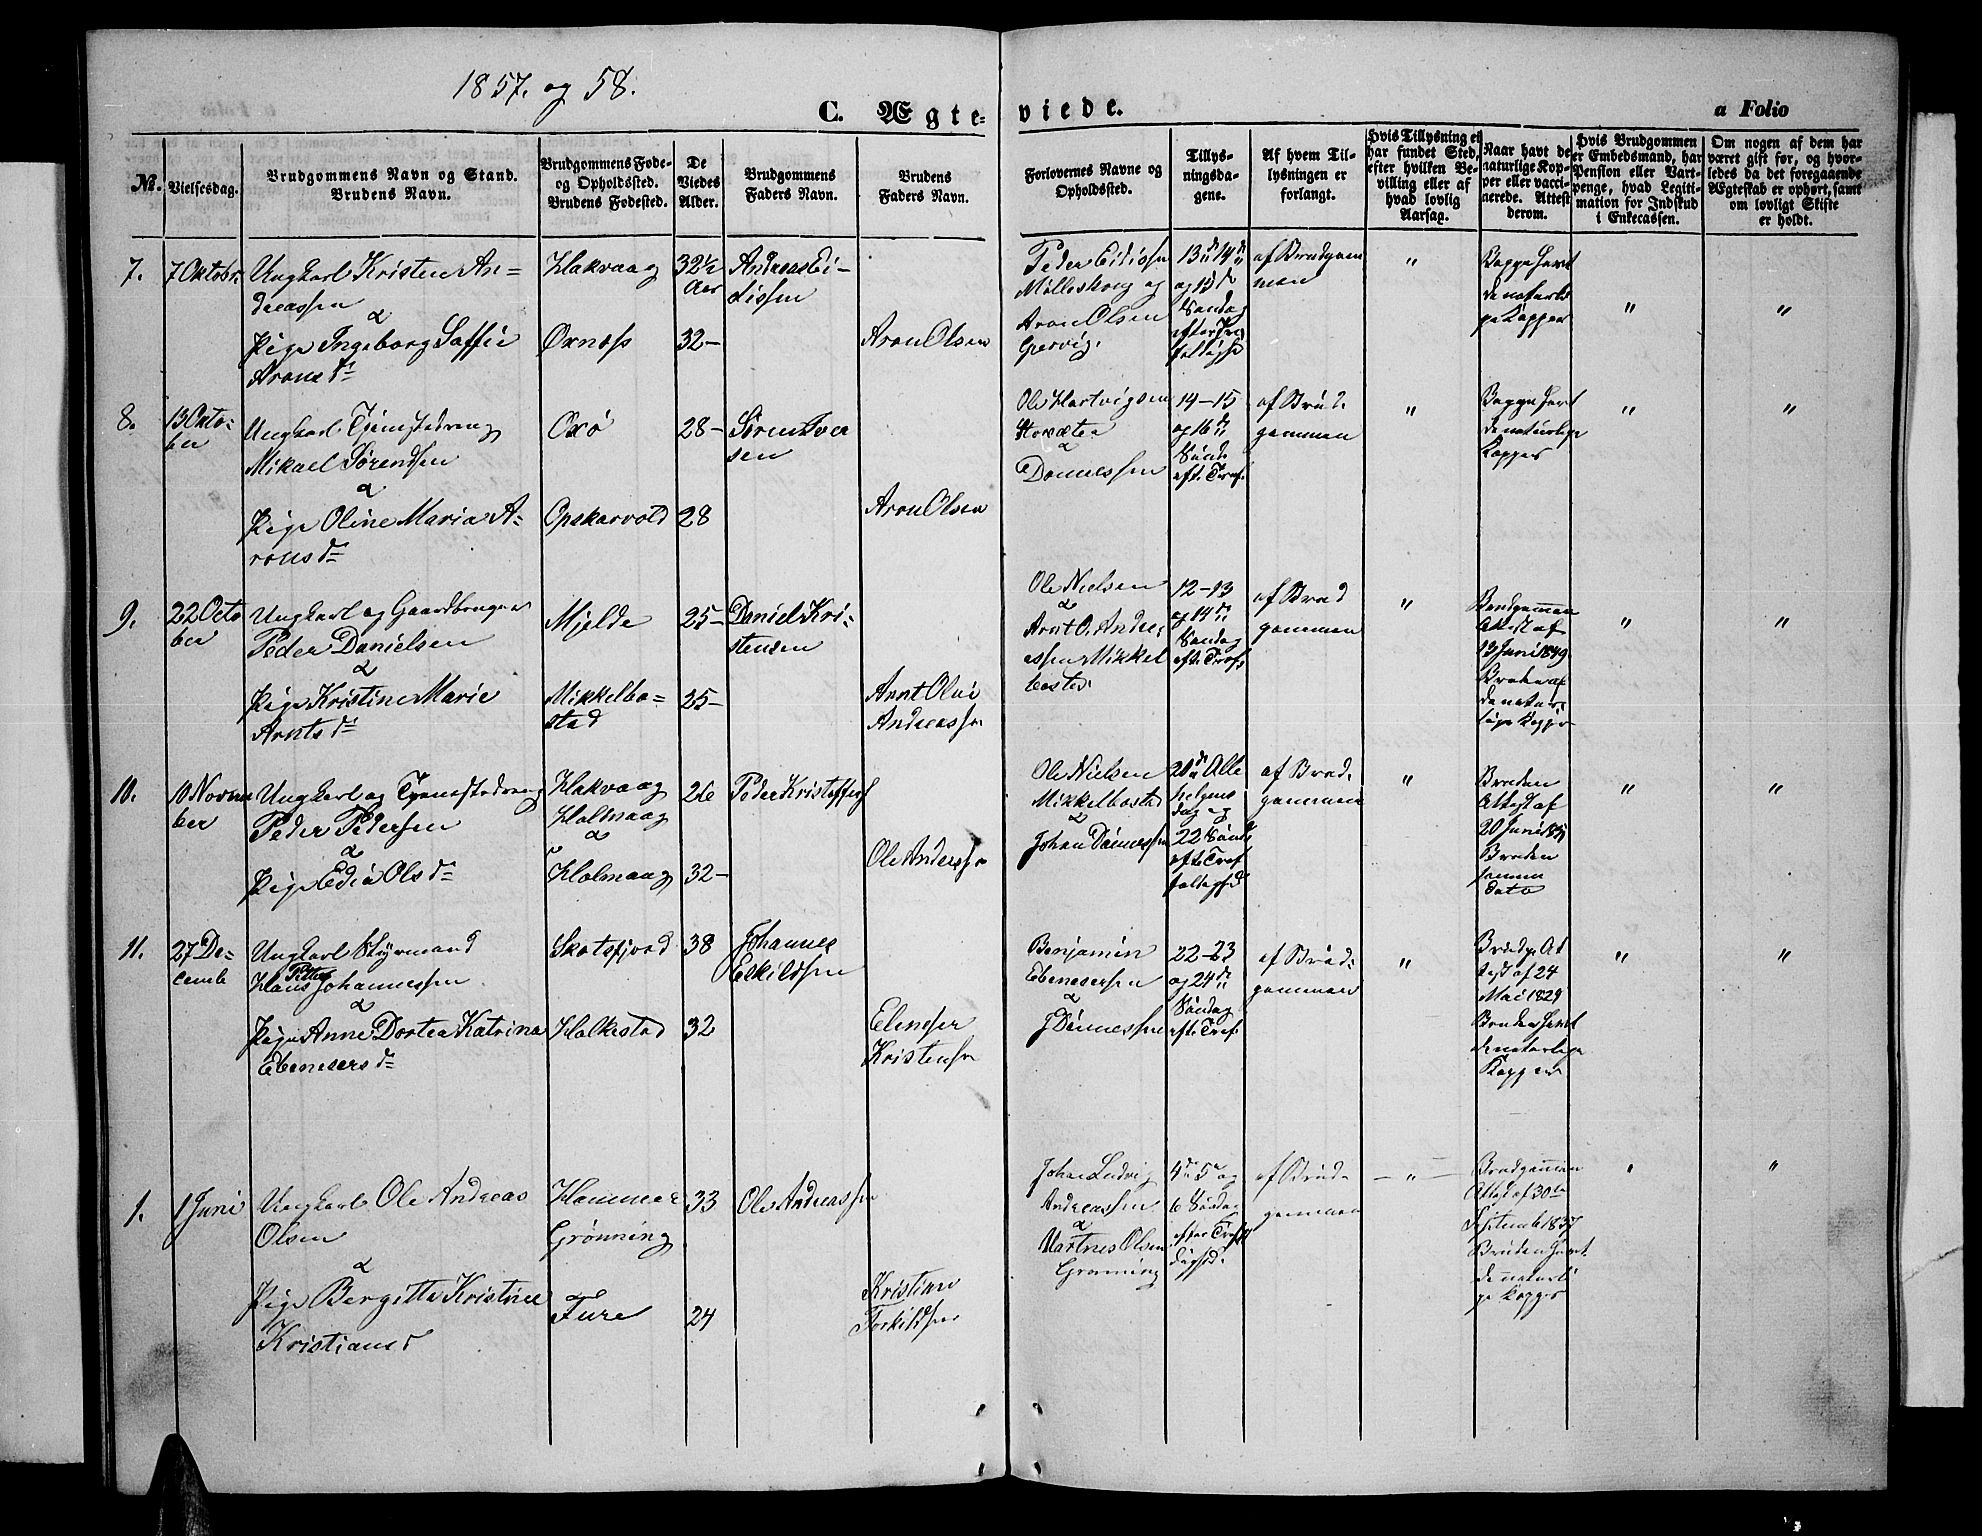 1857. og 58.
C. Ægte=
viede.
a Folio
№.
Vielsesdag.
Brudgommens Navn og Stand.
Brudens Navn.
Brudgommens Føde-
og Opholdssted.
Brudens Fødested.
De
Viedes
Alder.
Brudgommens
Faders Navn.
Brudens
Faders Navn.
Forlovernes Navne og
Opholdssted.
Tillys-
ningsda-
gene.
Af hvem Til-
lysningen er
forlangt.
Hvis Tillysning ei
har fundet Sted,
efter hvilken Be-
villing eller af
hvad lovlig
Aarsag.
Naar havt de
naturlige Kop-
per eller vacci-
nerede. Attest
derom.
Hvis Brudgommen
er Embedsmand, har
Pension eller Vart-
penge, hvad Legiti-
mation for Indskud
i Enkecassen.
Om nogen af dem har
været gift før, og hvor-
ledes da det foregaaende
Ægteskab er ophørt, samt
om lovligt Skifte
er holdt.
7.
7 Oktobr.
Ungkarl Kristen An=
dreassen
&
Pige Ingeborg Soffie
Aronsd
Hakvaag
Oxnæs
32½
Aar
32-
Andreas Ei-
dissen
Aron Olsen
Peder Eidisen
og
Aron Olsen
13d 14d
og 15d
Søndag
efter
af Brudgom
men
"
Koppe havt
de naturli
ge Kopper
"
"
8.
13 Octo-
ber
Ungkarl Tjenestedreng
Mikael Sørendsen
&
Pige Oline Maria A-
ronsd
Oxø
Opskarvold
28-
28
Søren Iver
sen
Aron Olsen
Ole Hartvigsen
&
Dønnessen
14-15
og 16d
Sønd
eft. Tref.
af Brud-
gommen
"
Koppe havt
de naturlige
Kopper
"
"
9.
22 Octo
ber
Ungkarl og Gaardbruger
Peder Danielsen
&
Pige Kristine Marie
Arntsd
Mjelde
Mikkelbo=
stad
25-
25-
Daniel Kri-
stensen
Arnt Olai
Andreassn
Ole Nielsen
&
Arnt O. Andre-
assen Mikkel
bosted.
12-13
og 14d
Søndag
eft. Tref.
af Brud
gommen
"
Brudgommen
Attest af
13 Juni 1849
Bruden af
de natur-
lige Kopper
"
"
10.
10 Novem
ber
Ungkarl og Tjenestedreng
Peder Pedersen
&
Pige Edia Olsd
Hakvaag
Holmaag
&
Holmaag
26
32-
Peder Kristoffers
Ole Anderssn
Ole Nielsen
Mikkelbosted
&
Johan Dønnessen
20d Alle
helgens
dag og
22 Sønd
eft. Tref
foldighd
af Brud-
gommen
"
Bruden
Attest af
20 Juni
Bruden
samme
Dato
"
"
11.
27 De-
cemb
Ungkarl Styrmand
Petter
Hans Johannessen
&
Pige Anne Dortea Katrina
Ebenesersd
Skotsfjord
Holkestad
38
32
Johannes
Eskildsen
Kristensn
Benjamin
Ebenesersen
&
J Dønnessen
22-23
og 24d
Søndag
eft. Tref.
af Brud-
gommen
"
Brudg. At
test af 24
Mai 1829
Bruden havt
de naturlige
Kopper
"
"
1.
1 Juni
Ungkarl Ole Andreas
Olsen
&
Pige Bergitte Kristine
Kristiansd
Hammer
Grønning
Fure
33
24
Ole Andreassn
Kristian
Torkildsen
Johan Ludvig
Andreassen
&
Martnes Olsen
Grønning
4de 5 og
6 Søndag
efter Tref
af Brud-
gommen
- " -
Brudgommen
Attest af 30te
Septemb 1837
Bruden havt
de naturli
ge Kopper
"
"